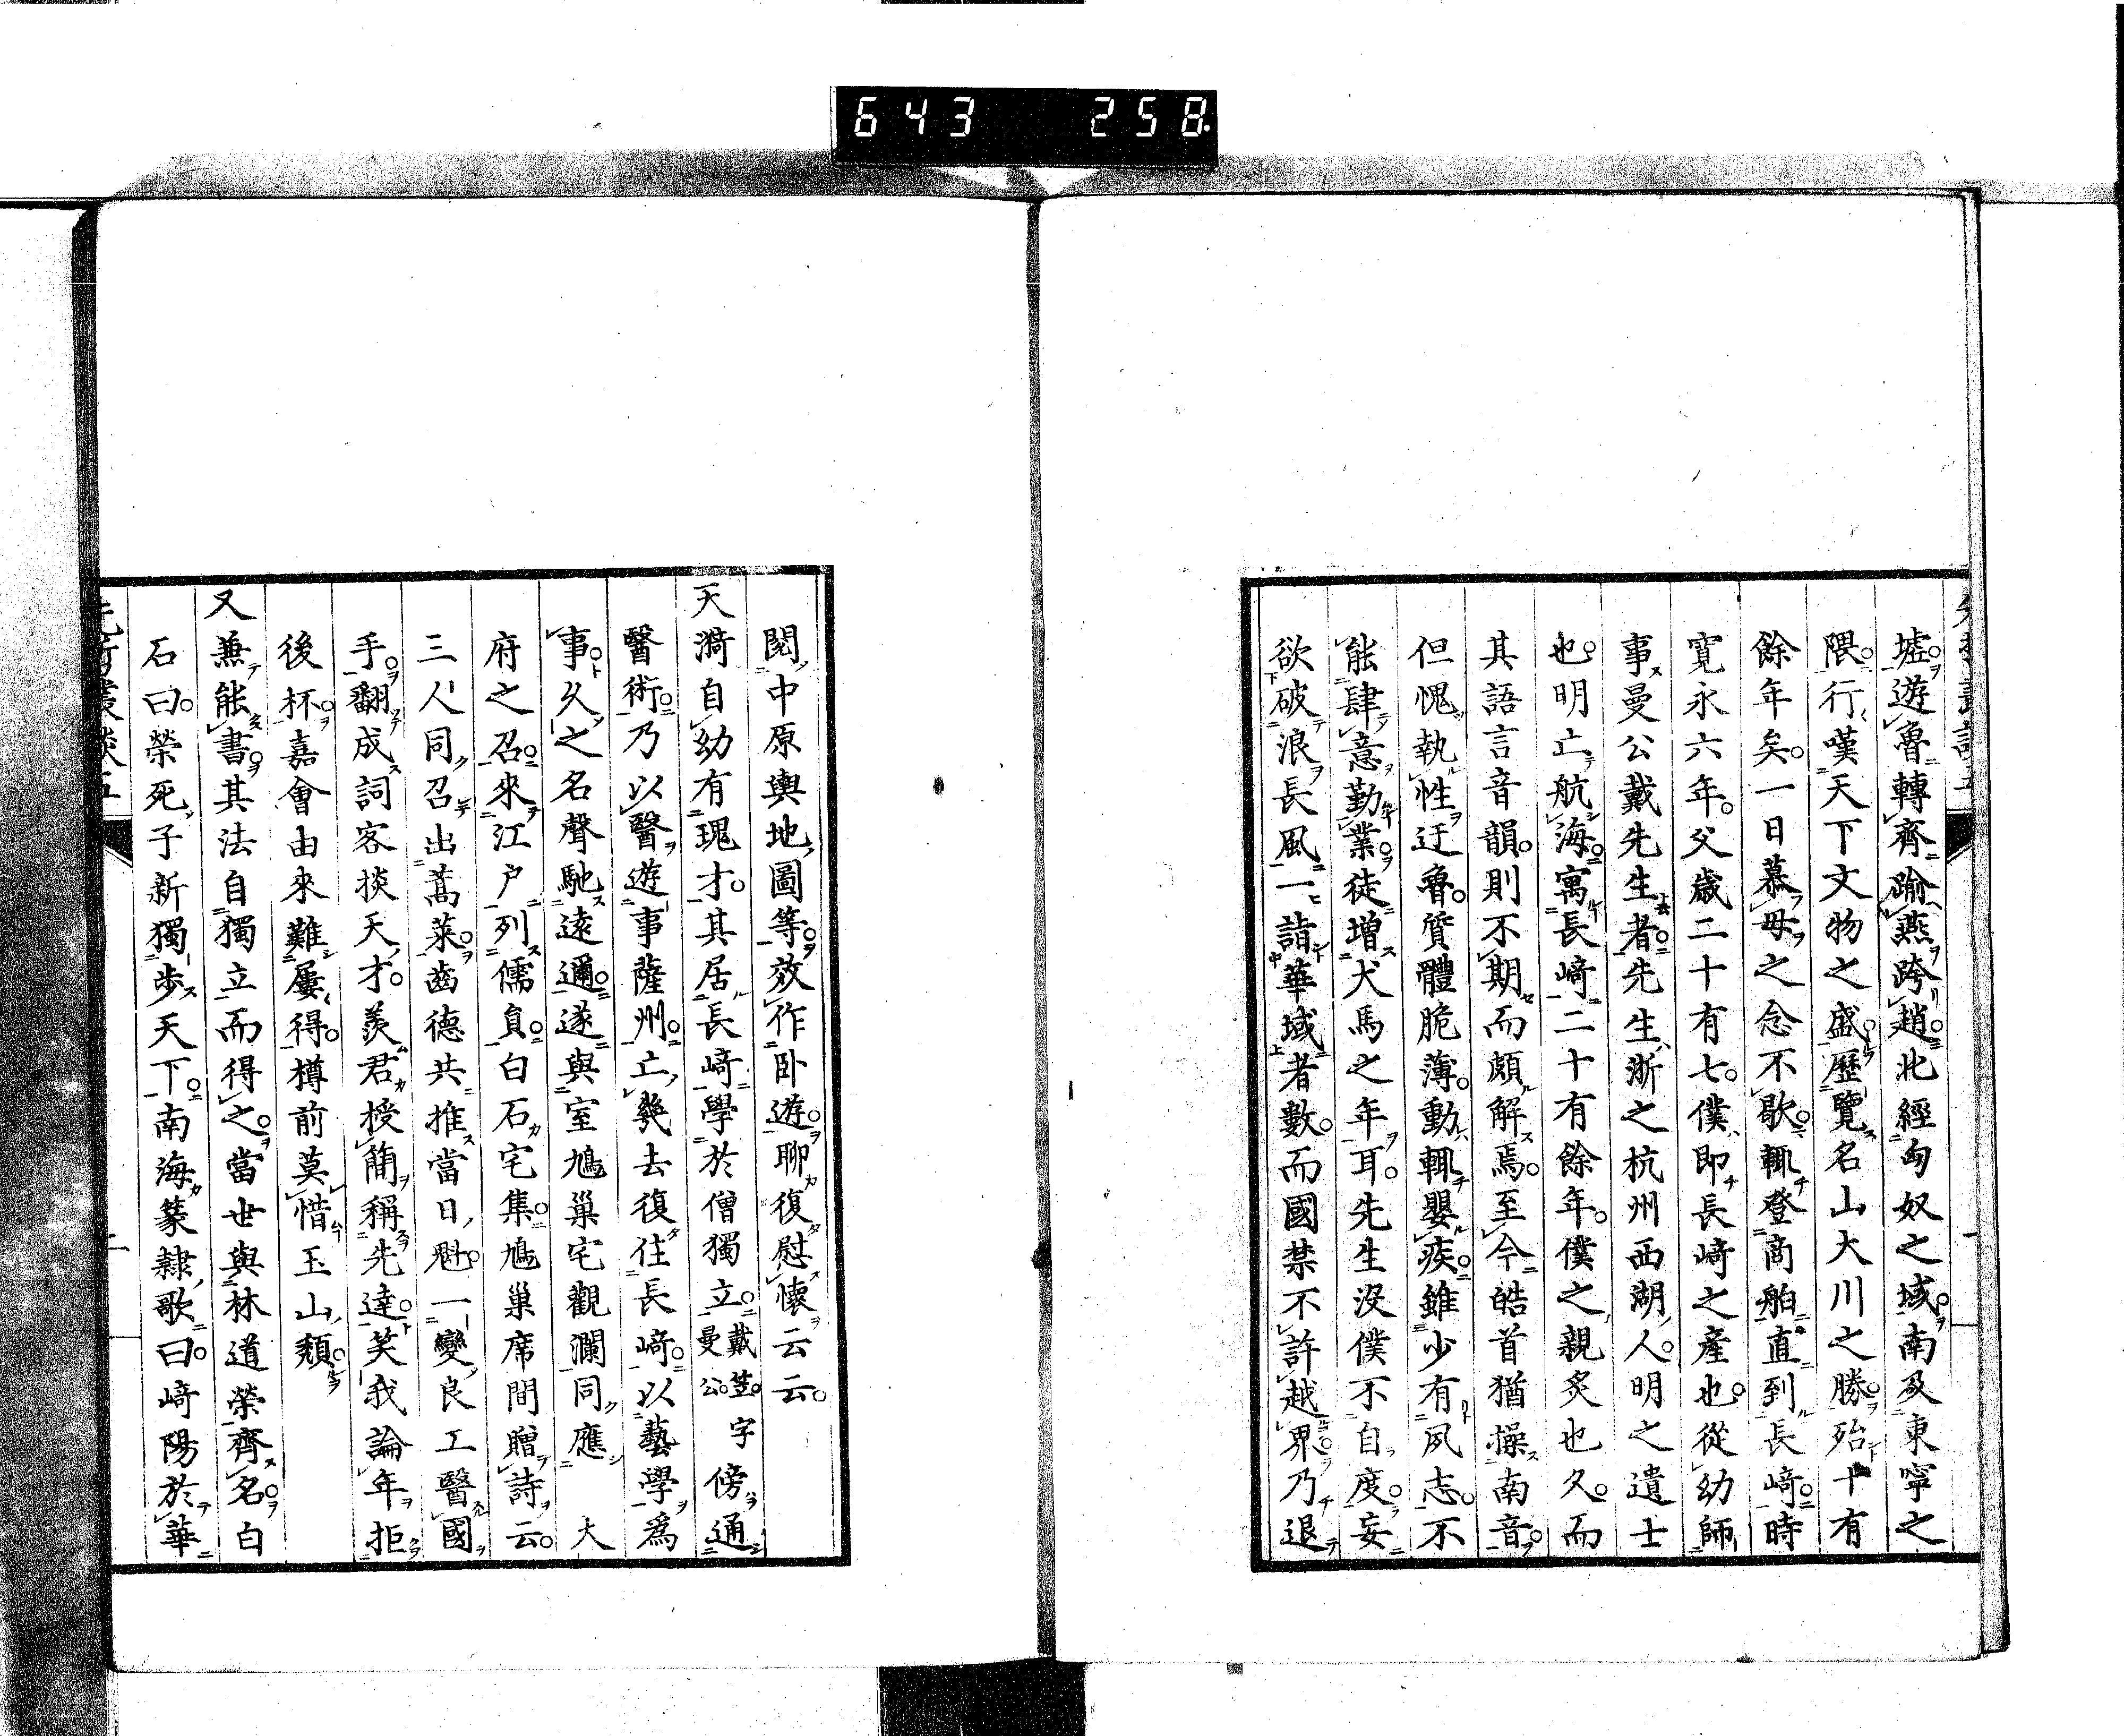 643 258
墟遊魯轉齊踰燕跨趙北經匈奴之域南及東寧之
隈行嘆天下文物之盛歷覽名山大川之勝殆十有
餘年矣一日慕母之念不歇輒登商舶直到長崎時
寛永六年父歲二十有七僕即長崎之產也從幼師
事曼公戴先生者先生浙之杭州西湖人明之遺士
也明亡航海寓長崎二十有餘年僕之親炙也久而
其語言音韻則不期而頗解焉至今皓首猶操南音
但愧執性迂魯質體脆薄動輒嬰疾雖少有夙志不
能肆意勤業徒增犬馬之年耳先生沒僕不自度妄
欲破浪長風一詣華域者數而國禁不許越界乃退
閱中原輿地圖等效作臥遊聊復慰懷云云
天漪自幼有瑰才其居長崎學於僧獨立戴笠字曼公傍通
醫術乃以醫遊事薩州亡幾去復住長崎以藝學爲
事久之名聲馳遠邇遂與室鳩巢宅觀瀾同應 大
府之召來江戶列儒員白石宅集鳩巢席間贈詩云
三人同召出蒿萊齒德共推當日魁一變良工醫國
手翻成詞客掞天才羨君授簡稱先達笑我論年拒
後杯嘉會由來難屢得樽前莫惜玉山頹
又兼能書其法自獨立而得之當世與林道榮齊名白
石曰榮死子新獨步天下南海篆隷歌曰崎陽於華
先哲叢談五
二